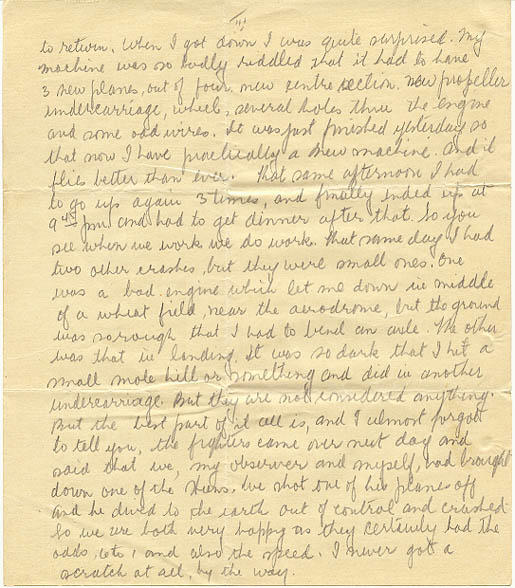 III
to return. When I got down I was quite surprised. My
machine was so badly riddled that it had to have
3 new planes, out of four, new centre section. New propeller
undercarriage, wheel, several holes thru the engine
and some odd wires. It was just finished yesterday so
that now I have practically a new machine. And it
flies better than ever. That same afternoon I had
to go up again 3 times, and finally ended up at
9 45 pm and had to get dinner after that. So you
see when we work we do work. That same day I had
two other crashes, but they were small ones. One
was a bad engine which let me down in middle
of a wheat field, near the aerodrome, but the ground
was so rough that I had to bend an axle. The other
was that in landing, It was so dark that I hit a
small mole hill or something and did in another
undercarriage. But they are not considered anything.
But the best part of it all is, and I almost forgot
to tell you, the fighters came over next day and
said that we, my observer and myself, had brought
down one of the Huns. We shot one of his planes off
and he dived to the earth out of control and crashed.
So we are both very happy as they certainly had the
odds, 6 to 1 and also the speed. I never got a
scratch at all, by the way.